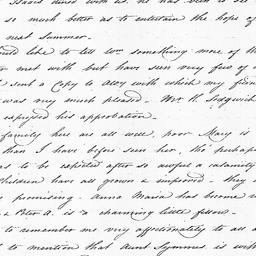 Isaac dined with us. he has been to see
so much better as to entertain the hope of
next summer.
would like to tell you something more of th
met with but have seen very few of
sent a Copy to Alex with which my frien
was very much pleased - Mr. H. Sedgwick
expressed his approbation -
family here are all well, poor Mary is
than I have before seen her, tho' perhaps
as to be expected after so awful a calamity
children have all grown & improved - they
promising. Anna Maria has become
& Peter A. is a charming little fellow -
to remember me very affectionately to all
to mention that Aunt Symmes is with